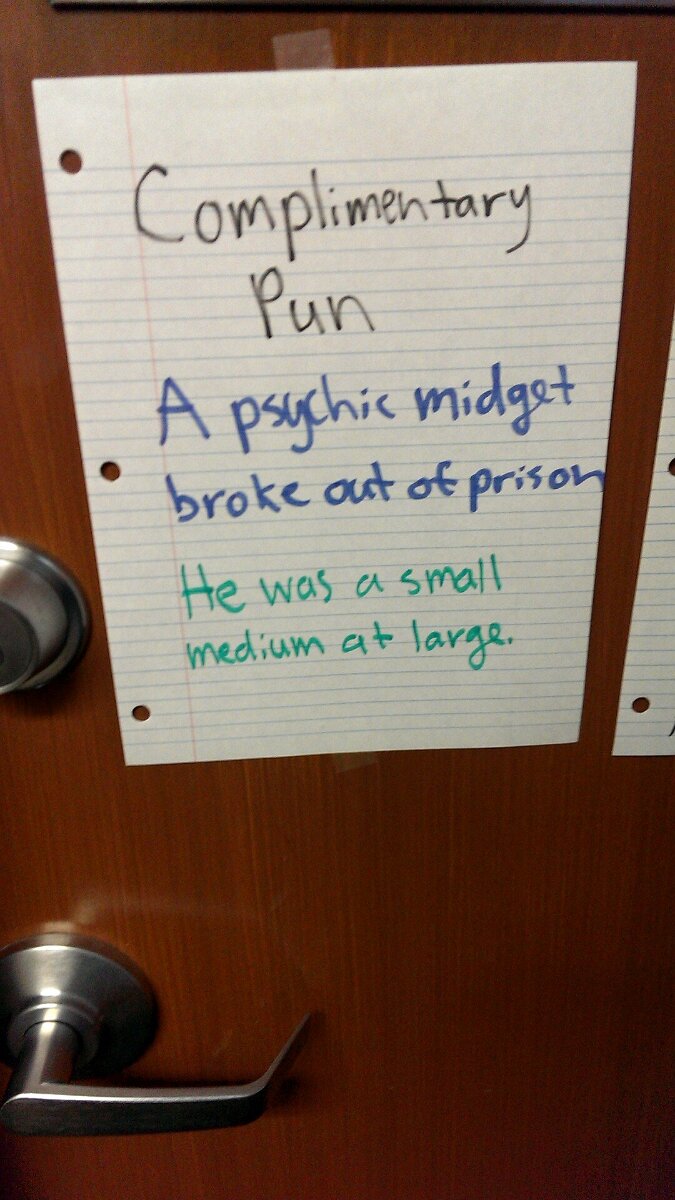 Complimentary
Pun
A psychic midget
broke out of prison
He was a small
medium at large.